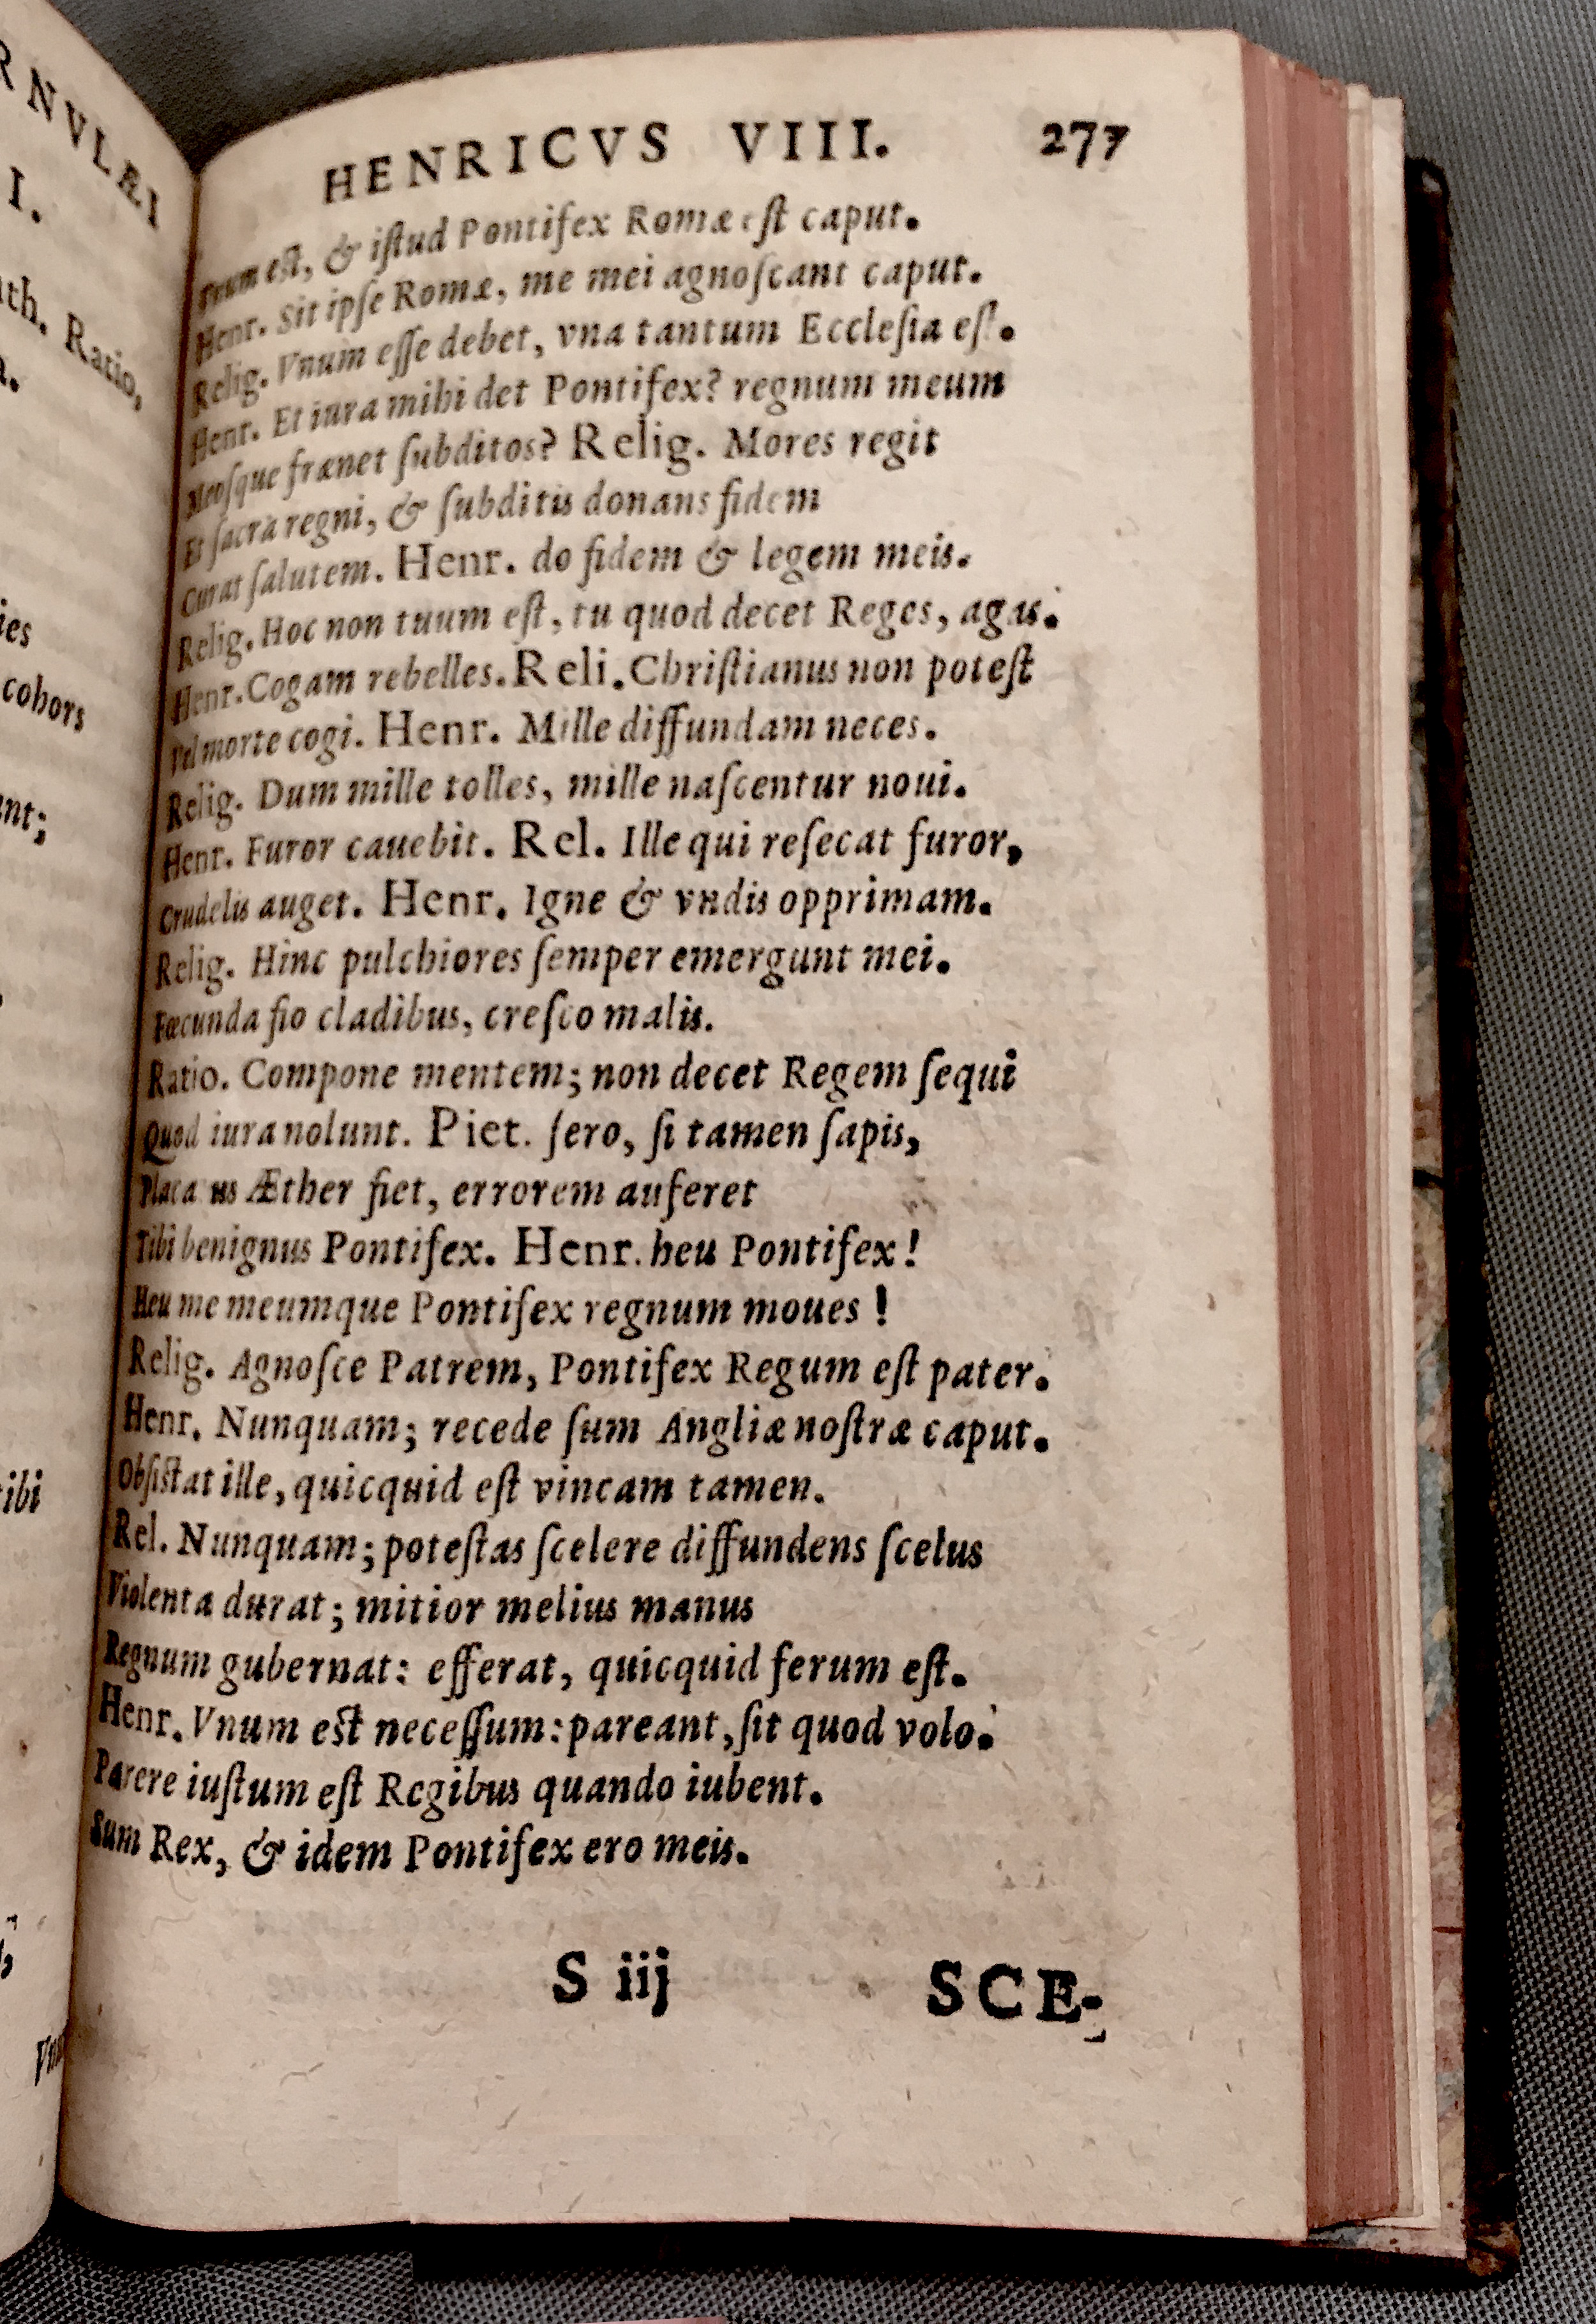 RNVLÆI
I.
ith. Ratio,
ies
cohors
ant;
tibi
HENRICVS VIII. 277
est, & iſtud Pontifex Romæ eſt caput.
Henr. Sit ipſe Romæ, me mei agnoſcant caput.
Relig. Vnum eſſe debet, vna tantum Eccleſia eſt.
Henr. Et iura mihi det Pontifex? regnum meum
Meoſque frænet ſubditos? Relig. Mores regit
Et ſacra regni, & ſubditis donans fidem
Curat ſalutem. Henr. do fidem & legem meis.
Relig. Hoc non tuum eſt, tu quod decet Reges, agas.
Henr. Cogam rebelles. Reli. Chriſtianus non poteſt
Vel morte cogi. Henr. Mille diffundam neces.
Relig. Dum mille tolles, mille naſcentur noui.
Henr. Furor cauebit. Rel. Ille qui reſecat furor,
Crudelis auget. Henr. Igne & vndis opprimam.
Relig. Hinc pulchiores ſemper emergunt mei.
Fœcunda fio cladibus, creſco malis.
Ratio. Compone mentem; non decet Regem ſequi
Quod iura nolunt. Piet. ſero, ſi tamen ſapis,
Placatus Æther fiet, errorem auferet
Tibi benignus Pontifex. Henr. heu Pontifex!
Heu me meumque Pontifex regnum moues!
Relig. Agnoſce Patrem, Pontifex Regum eſt pater.
Henr. Nunquam; recede ſum Angliæ noſtræ caput.
Obſiſtat ille, quicquid eſt vincam tamen.
Rel. Nunquam; poteſtas ſcelere diffundens ſcelus
Violenta durat; mitior melius manus
Regnum gubernat: efferat, quicquid ferum eſt.
Henr. Vnum eſt neceſſum: pareant, ſit quod volo.
Parere iuſtum eſt Regibus quando iubent.
Sum Rex, & idem Pontifex ero meis.
S iij SCE-